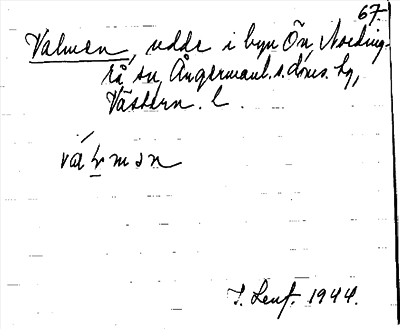 67.
Valmen, udde i byn Ön, Noeding-
rå sn, Ångermanl. s. dms. hg,
Västern. l.
vál̠mən
I. Lenf. 1944.